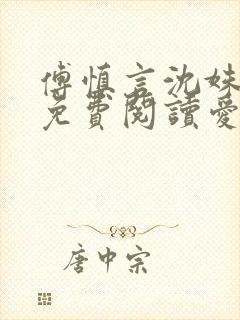 傅慎言沈姝
免費閱讀愛
唐中宗